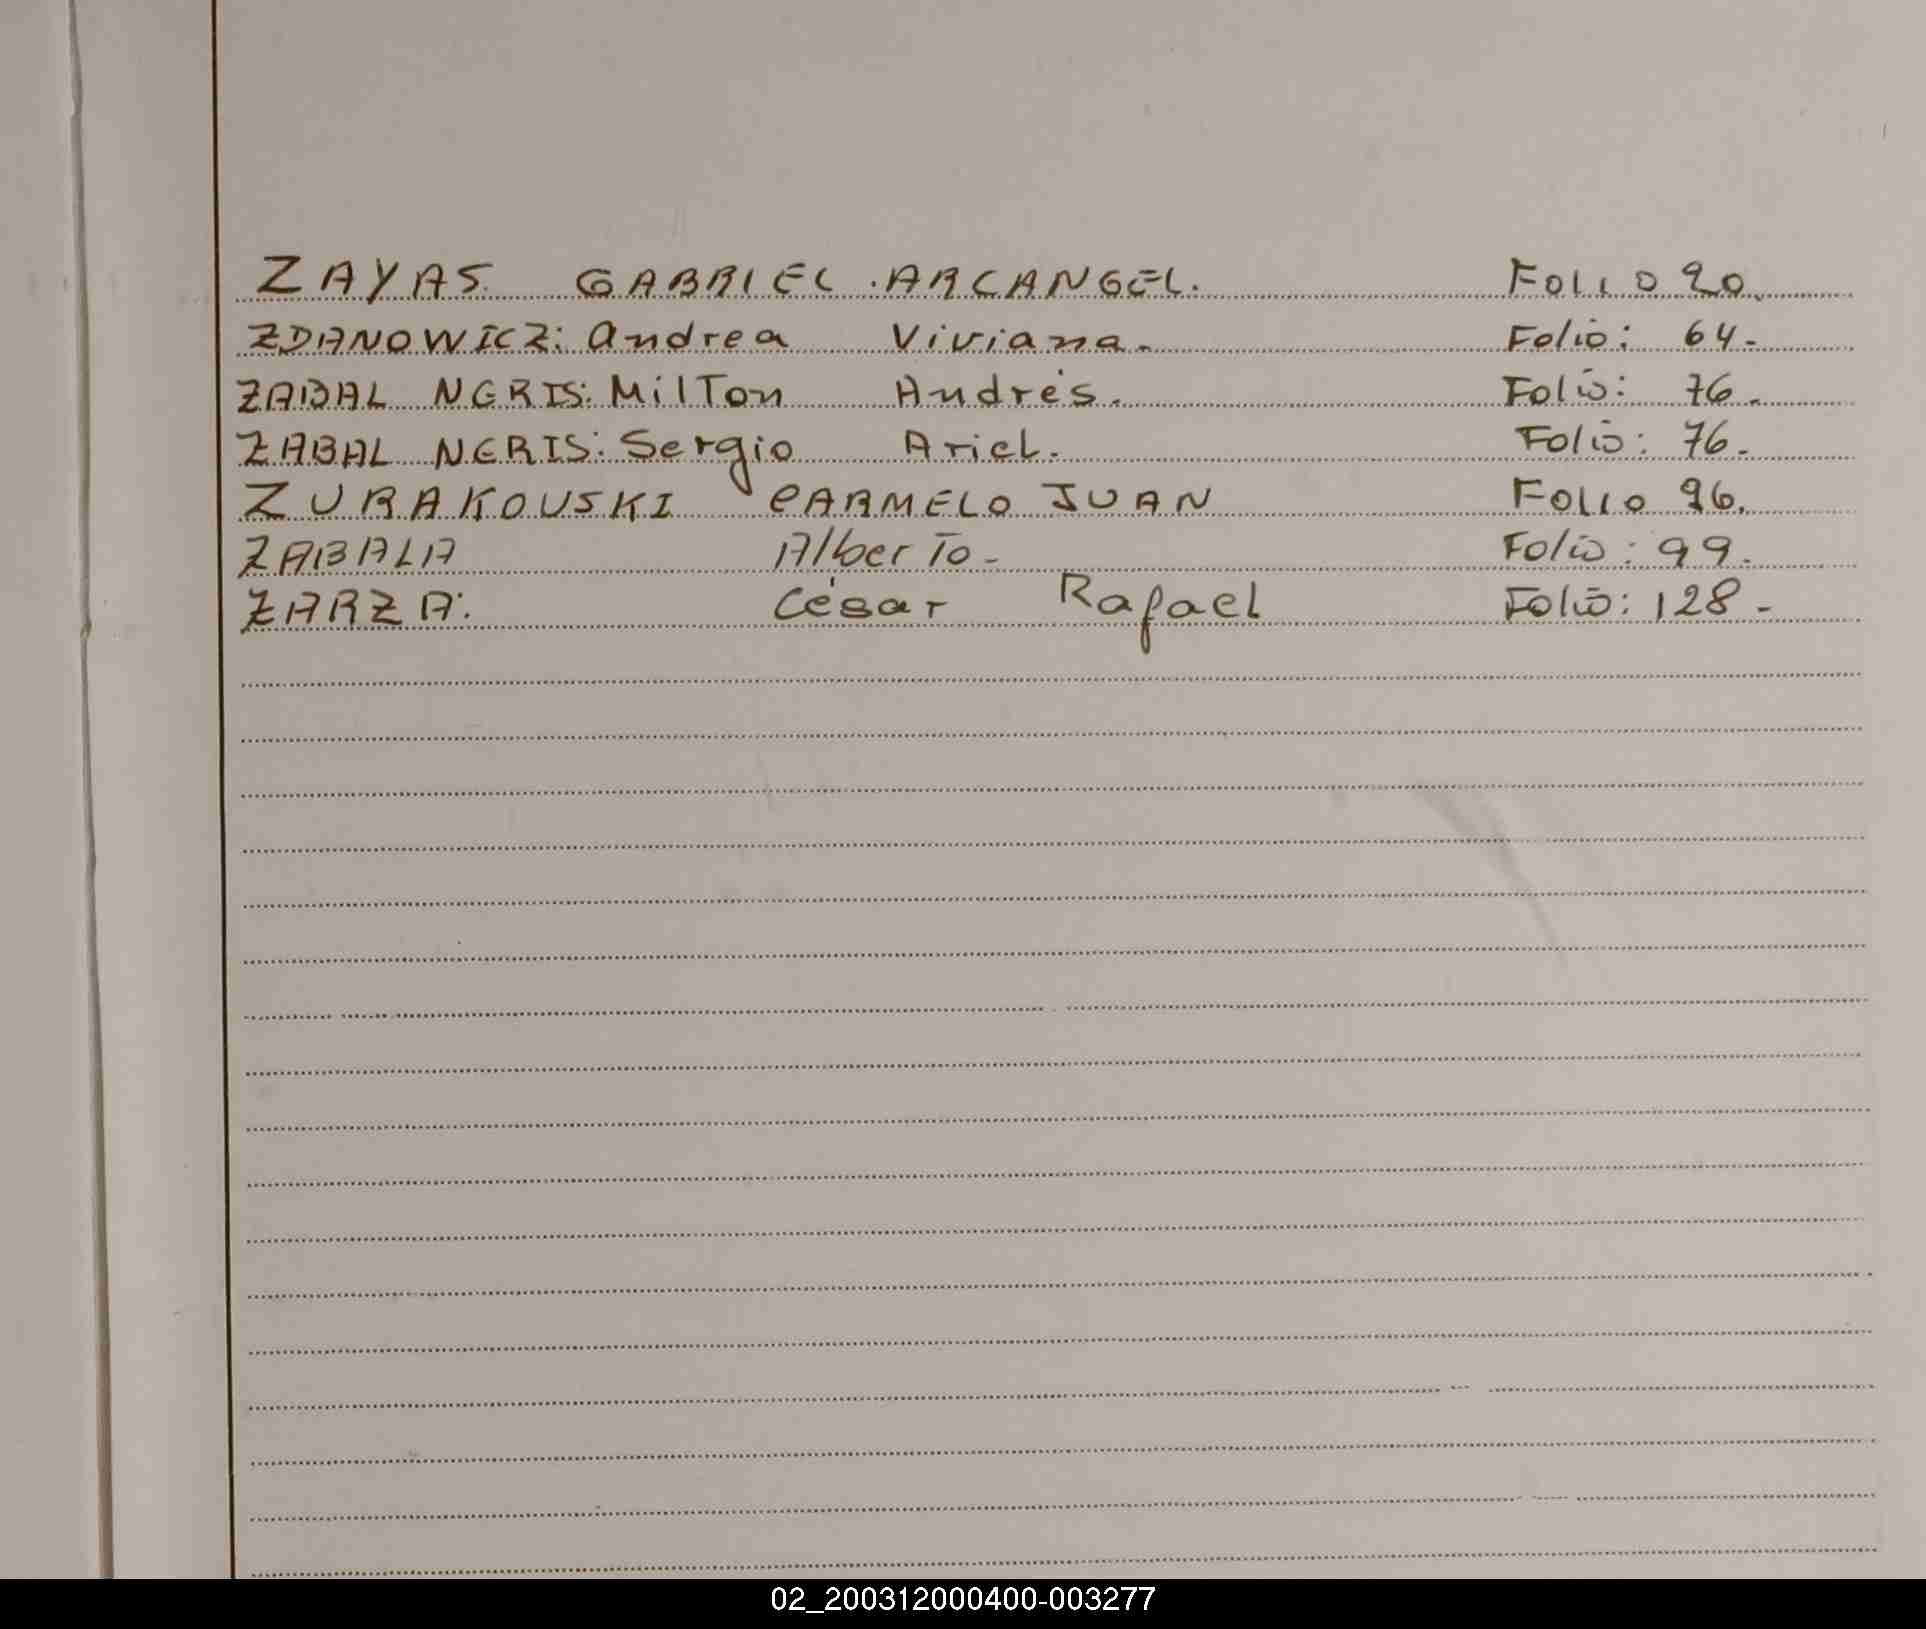 ZAYAS GABRIEL ARCANGEL. FOLIO 20.
ZDANOWICZ: Andrea Viviana. Folio: 64.
ZABAL NERIS: Milton Andrés. Folio: 76.
ZABAL NERIS: Sergio Ariel. Folio: 76.
ZURAKOUSKI CARMELO JUAN FOLIO 96.
ZABALA Alberto- Folio: 99.
ZARZA: César Rafael Folio: 128-
02_200312000400-003277